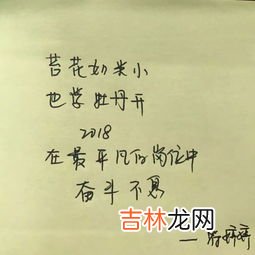 苔花如米小
也学牡丹开
2018
在最平凡的岗位中
奋斗不息
吉林龙网